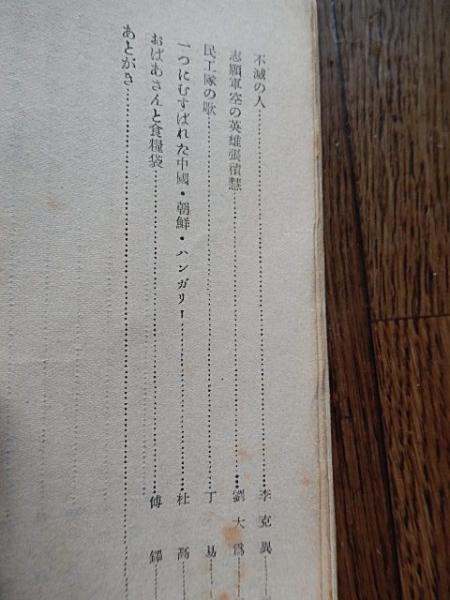 不滅の人……李克異
志願軍空の英雄張積慧……劉大為
民工隊の歌……丁易
一つにむすばれた中國・朝鮮・ハンガリー……杜高
おばあさんと食糧袋……傅鐸
あとがき……